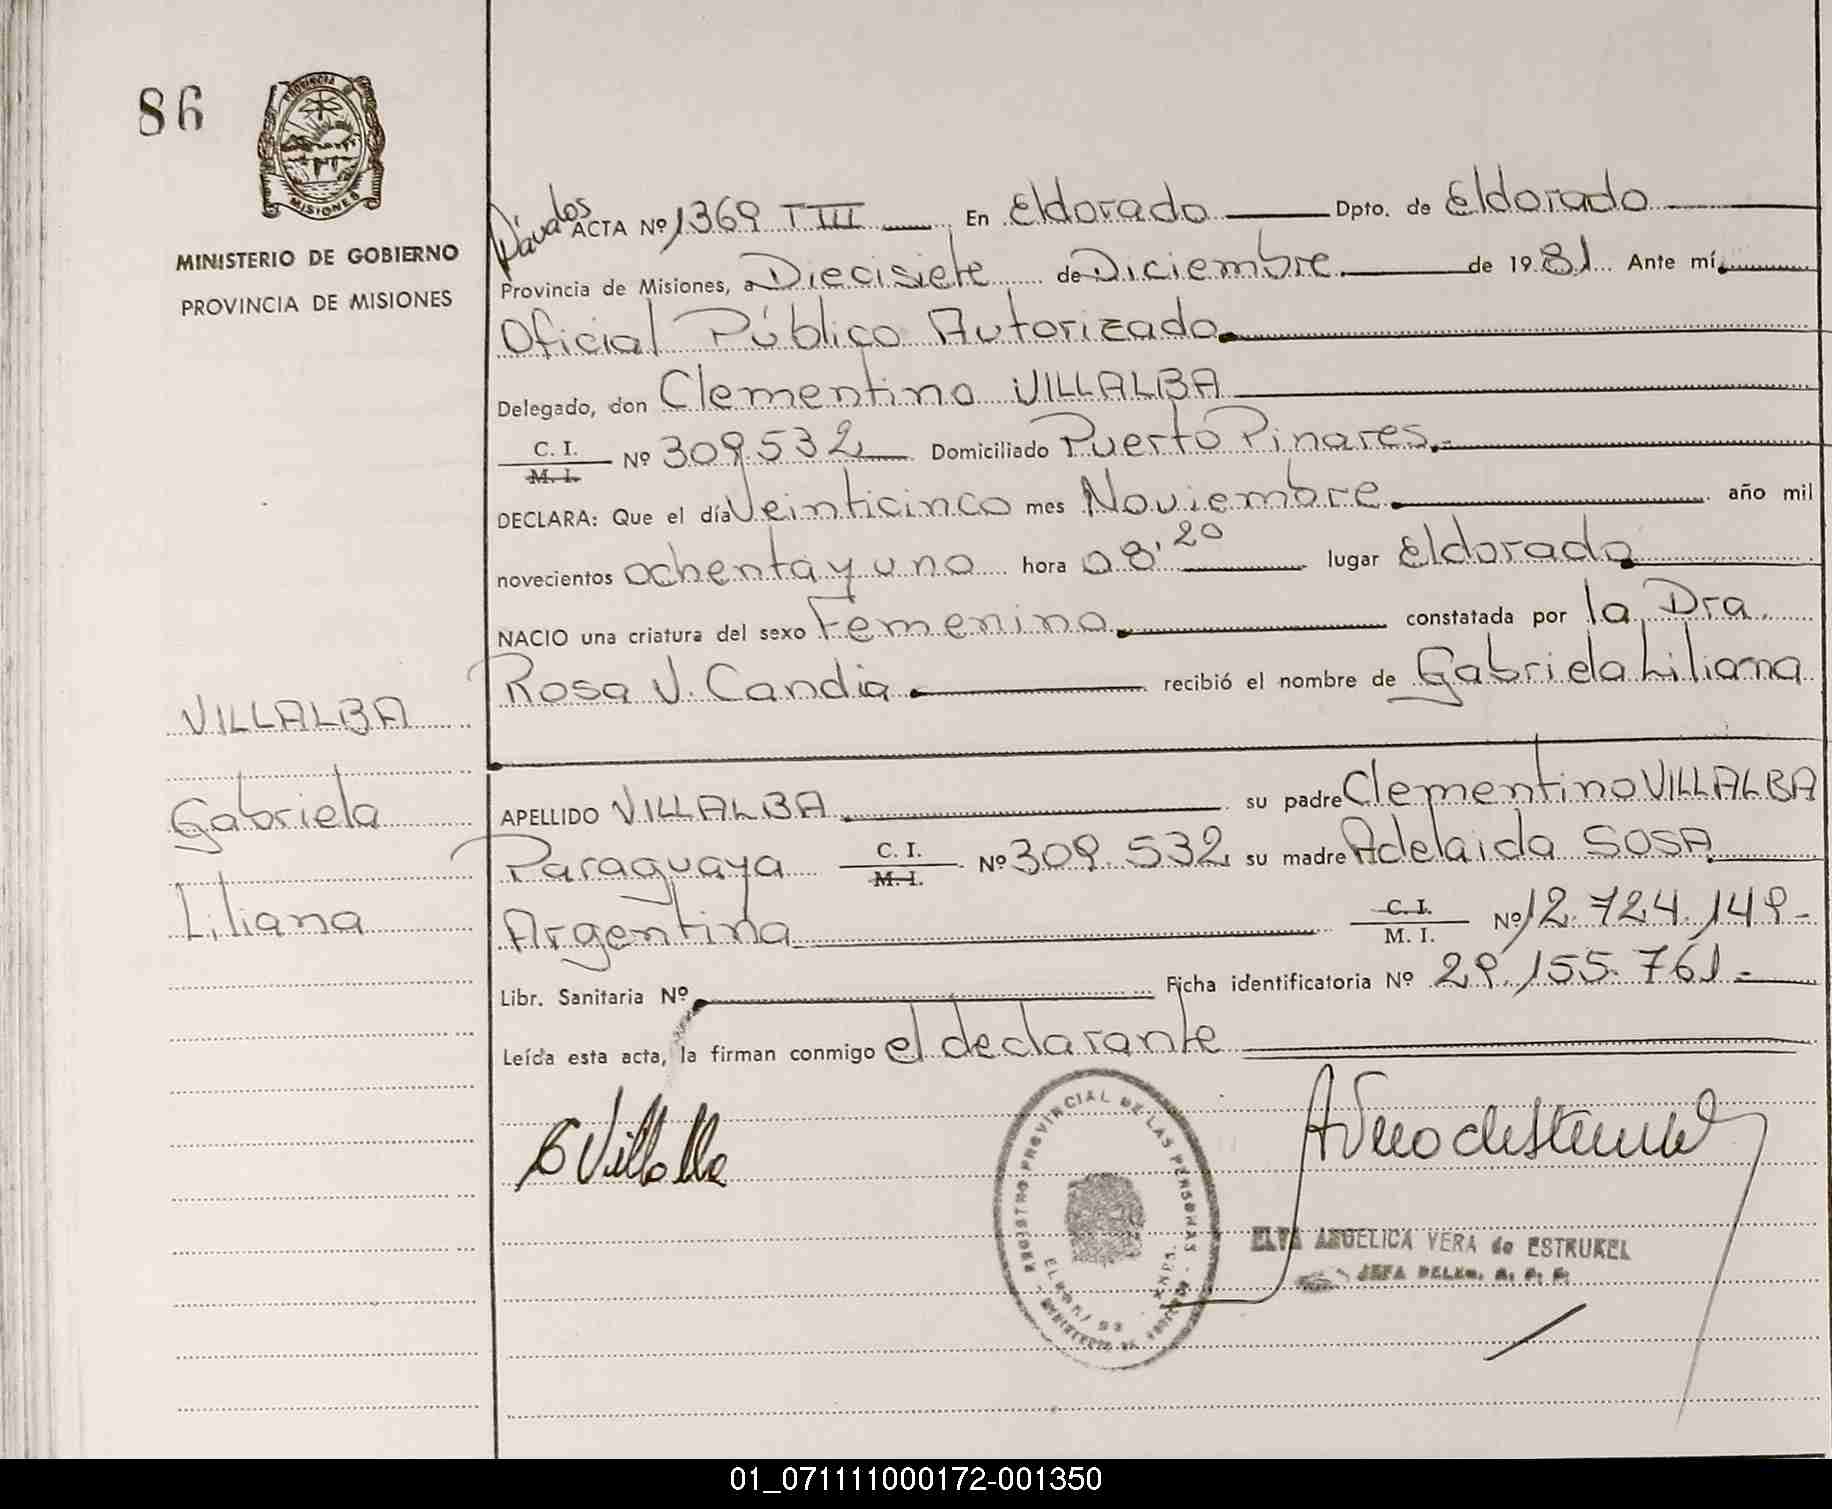 86
PROVINCIA
MISIONES
MINISTERIO DE GOBIERNO
PROVINCIA DE MISIONES
Dávalos
ACTA Nº 1369 T III En Eldorado Dpto. de Eldorado
Provincia de Misiones, a Diecisiete de Diciembre de 1981 Ante mí,
Oficial Público Autorizado
Delegado, don Clementino VILLALBA
C. I.
M. I. Nº 309.532 Domiciliado Puerto Pinares.-
DECLARA: Que el día Veinticinco mes Noviembre año mil
novecientos ochenta y uno hora 08'20 lugar Eldorado
NACIO una criatura del sexo Femenino constatada por la Dra.
Rosa V. Candia recibió el nombre de Gabriela Liliana
VILLALBA
Gabriela
Liliana
APELLIDO VILLALBA su padre Clementino VILLALBA
Paraguaya C. I.
M. I. Nº 309.532 su madre Adelaida SOSA
Argentina C. I.
M. I. Nº 12.724.149-
Libr. Sanitaria Nº Ficha identificatoria Nº 29.155.761.-
Leída esta acta, la firman conmigo el declarante
REGISTRO PROVINCIAL DE LAS PERSONAS
ELVA ANGELICA VERA de ESTRUKEL
JEFA DELEG.
01_071111000172-001350